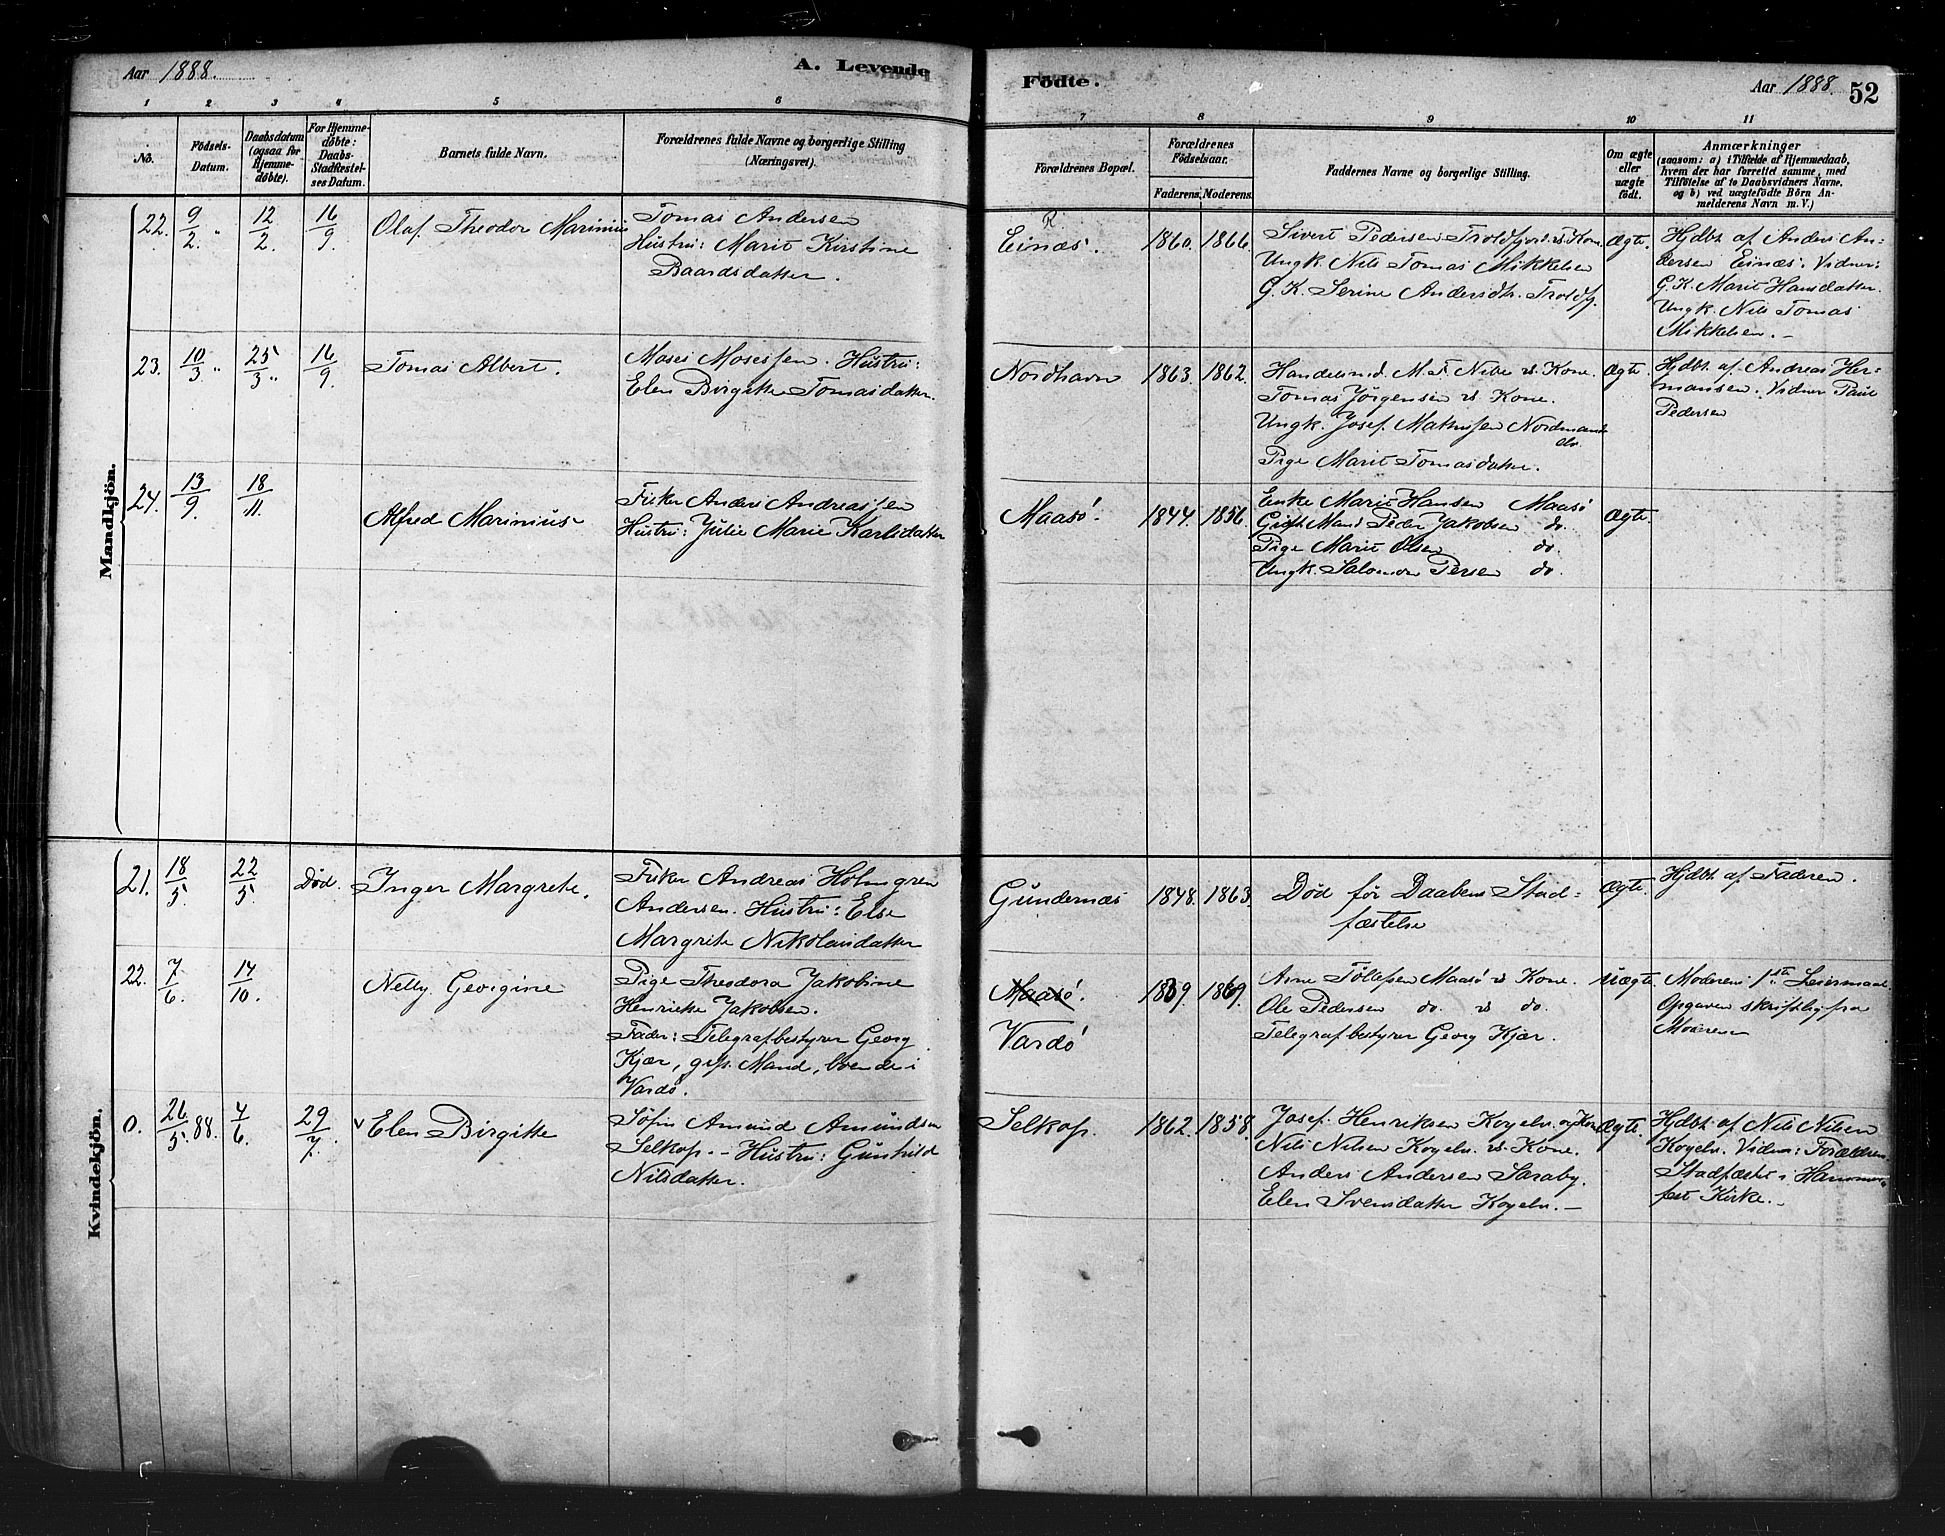 Aar 1888.
A. Levende
Födte.
Aar 1888.
52
1 2 3 4 5 6 7 8 9 10 11
No.
Födsels-
Datum.
Daabsdatum
(ogsaa for
Hjemme-
döbte).
For Hjemme-
döbte:
Daabs-
Stadfæstel-
ses Datum.
Barnets fulde Navn.
Forældrenes fulde Navne og borgerlige Stilling
(Næringsvei).
Forældrenes Bopæl.
Forældrenes
Födselsaar.
Faderens. Moderens.
Faddernes Navne og borgerlige Stilling.
Om ægte
eller
uægte
födt.
Anmærkninger
(saasom: a) i Tilfælde af Hjemmedaab,
hvem der har forrettet samme, med
Tilföielse af to Daabsvidners Navne,
og b) ved uægtefödte Börn An-
melderens Navn m. V.)
Mandkjön.
22. 9/2. " 12/2. 16/9
Olaf Theodor Marinius
Tomas Andersen
Hustru: Marit Kirstine
Baardsdatter.
R
Einæs.
1860. 1866.
Sivert Pedersen Troldfjord & Kone.
Ungk. Nils Tomas Mikkelsen
G. K. Serine Andersdtr. Troldfj.
Ægte.
Hjdbt. af Anders An-
dersen Einæs. Vidner:
G. K. Marit Hansdatter.
Ungk. Nils Tomas
Mikkelsen. -
23. 10/3 " 25/3 " 16/9
Tomas Albert.
Moses Mosessen. Hustru:
Elen Birgitte Tomasdatter.
Nordhavn
1863. 1862.
Handelsmd. M. F. Nibe & Kone.
Tomas Jörgensen & Kone.
Ungk. Josef Mathissen Nordmands
elv.
Pige Marit Tomasdatter.
Ægte.
Hjdbt. af Andreas Her-
mansen. Vidner Paul
Pedersen
24. 13/9. 18/11.
Alfred Marinius
Fisker Anders Andreassen
Hustru: Julie Marie Karlsdatter
Maasö.
1844. 1856.
Enke Marit Hansen Maasö
Gift Mand Peder Jakobsen do.
Pige Marit Olsen do.
Ungk. Salomon Persen do.
Ægte.
Kvindekjön.
21. 18/5. 22/5. Död.
Inger Margrete.
Fisker Andreas Holmgren
Andersen. Hustru: Else
Margrete Nikolaidatter
Gundernæs
1848. 1863.
Död för Daabens Stad=
fæstelse
Ægte.
Hjdbt. af Faderen.
22. 7/6. 14/10.
Nelly Georgine
Pige Theodora Jakobine
Henrikke Jakobsen.
Fader: Telegrafbestyrer Georg
Kjær, gift Mand, boende i
Vardö.
Maasö.
Vardö
1839. 1869.
Arne Tollefsen Maasö & Kone.
Ole Pedersen do. & do.
Telegrafbestyrer Georg Kjær.
Uægte.
Moderens 1ste Leiermaal.
Opgaven skriftlig fra
Moderen
0. 26/5 88. 4/6. 29/7.
v Elen Birgitte
Söfin Amund Amundsen
Selkop. - Hustru: Gunhild
Nilsdatter.
Selkop.
1862. 1858.
Josef Henriksen Kogelv. og Kone
Nils Nilsen Kogelv. & Kone.
Anders Andersen Saraby.
Elen Svensdatter Kogelv. -
Ægte.
Hjdbt. af Nils Nilsen
Kogelv. Vidner: Forældrene.
Stadfæstet i Hammer-
fest Kirke. -